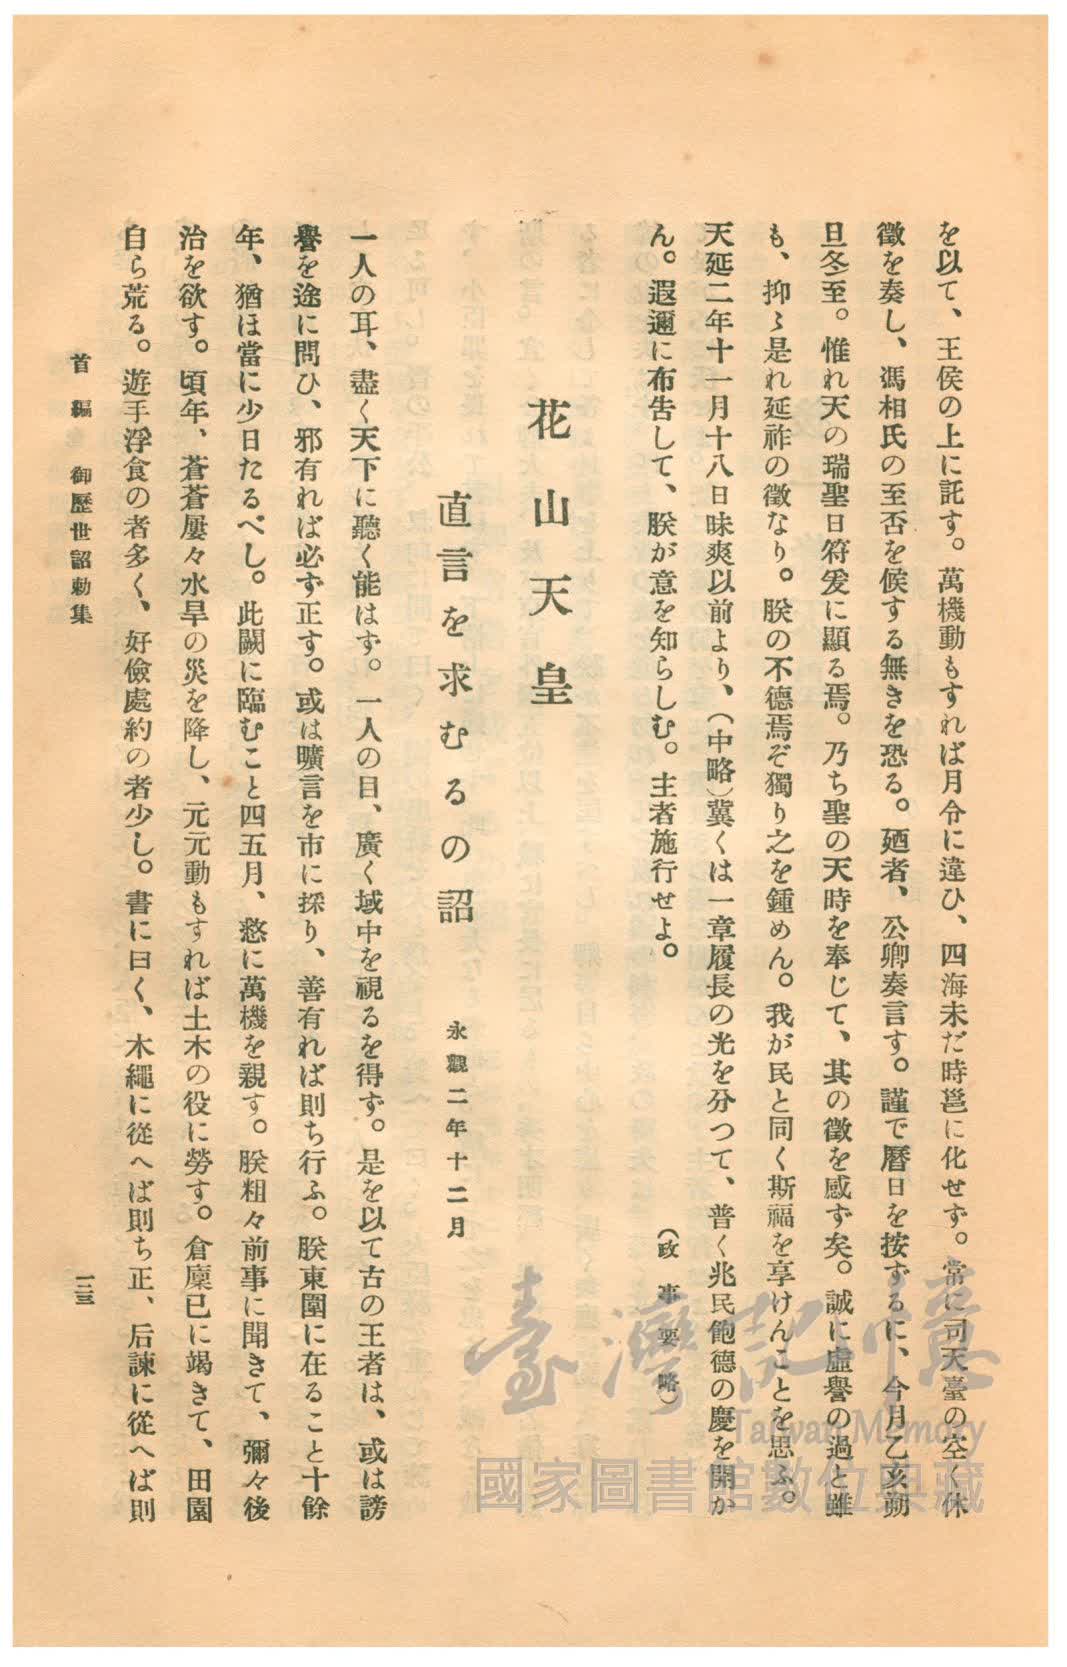 を以て、王侯の上に託す。萬機動もすれば月令に違ひ、四海未だ時邕に化せず。常に司天臺の空く休
徵を奏し、馮相氏の至否を候する無きを恐る。廼者、公卿奏言す。謹で曆日を按ずるに、今月乙亥朔
旦冬至。惟れ天の瑞聖日符爰に顯る焉。乃ち聖の天時を奉じて、其の徵を感ず矣。誠に虛譽の過と雖
も、抑〻是れ延祚の徵なり。朕の不德焉ぞ獨り之を鍾めん。我が民と同く斯福を享けんことを思ふ。
天延二年十一月十八日昧爽以前より、(中略)冀くは一章履長の光を分つて、普く兆民飽德の慶を開か
ん。遐邇に布告して、朕が意を知らしむ。主者施行せよ。
(政事要略)
花山天皇
直言を求むるの詔
永觀二年十二月
一人の耳、盡く天下に聽く能はず。一人の目、廣く域中を視るを得ず。是を以て古の王者は、或は謗
譽を途に問ひ、邪有れば必ず正す。或は曠言を市に採り、善有れば則ち行ふ。朕東闈に在ること十餘
年、猶ほ當に少日たるべし。此闕に臨むこと四五月、憖に萬機を親す。朕粗々前事に聞きて、彌々後
治を欲す。頃年、蒼蒼屢々水旱の災を降し、元元動もすれば土木の役に勞す。倉廩已に竭きて、田園
自ら荒る。遊手浮食の者多く、好儉處約の者少し。書に曰く、木繩に從へば則ち正、后諫に從へば則
首編 御歷世詔勅集
一三三
臺灣記憶
Taiwan Memory
國家圖書館數位典藏